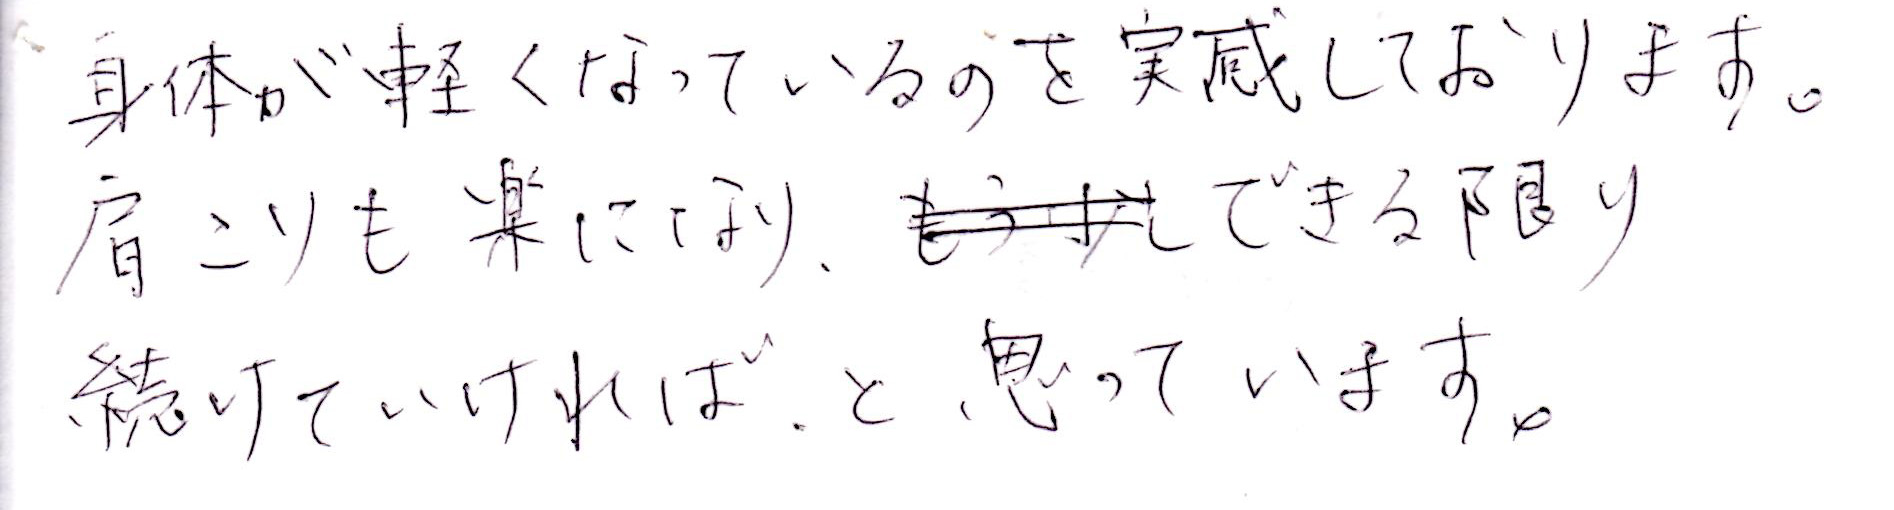 身体が軽くなっているのを実感しております。
肩こりも楽になり、もう少しできる限り
続けていければ、と思っています。